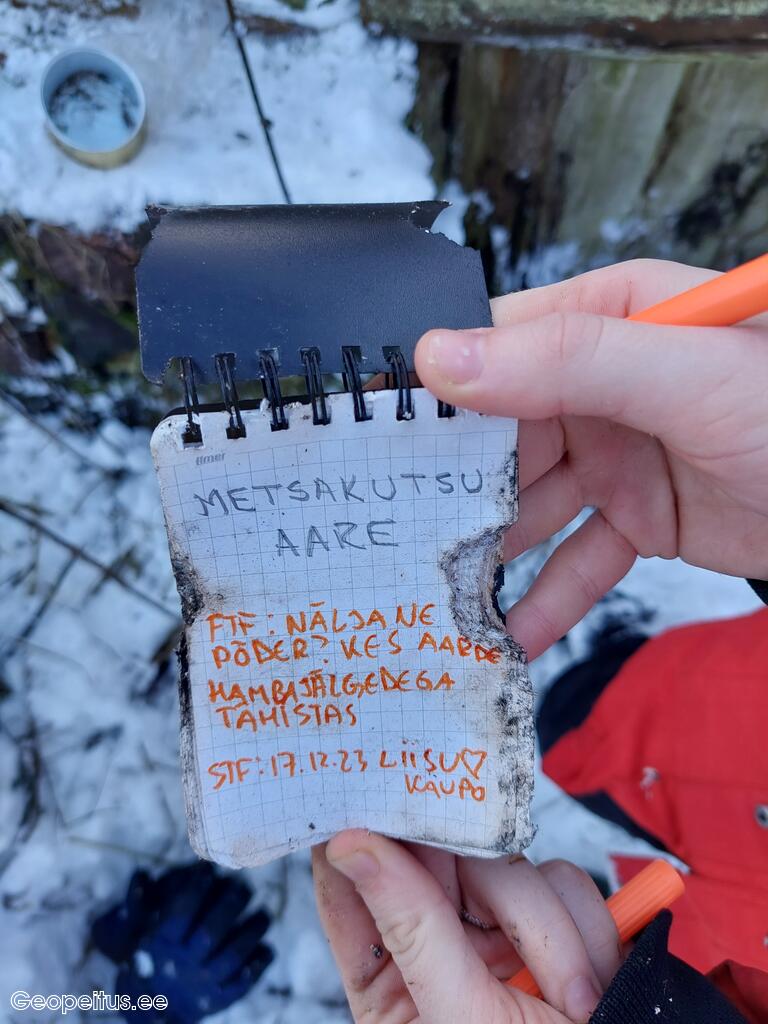 etmer
METSAKUTSU
AARE
FTF: NÄLJANE
PÕDER? KES AARDE
HAMBAJÄLGEDEGA
TÄHISTAS
STF: 17.12.23 LIISU♡
KAUPO
Geopeitus.ee